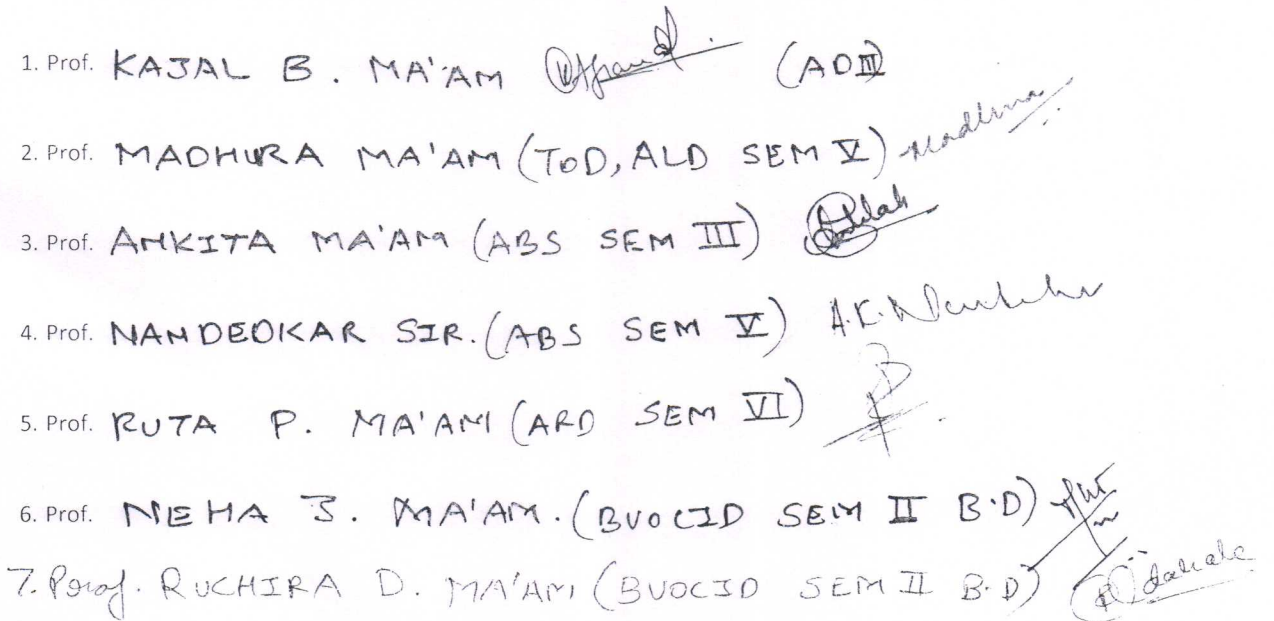 1. Prof. KAJAL B. MA'AM (AD III)
2. Prof. MADHURA MA'AM (TOD, ALD SEM V) Madhura
3. Prof. ANKITA MA'AM (ABS SEM III)
4. Prof. NANDEOKAR SIR. (ABS SEM V) A.K.
5. Prof. RUTA P. MA'AM (ARD SEM VI)
6. Prof. NEHA J. MA'AM. (BVOCID SEM II B.D)
7. Prof. RUCHIRA D. MA'AM (BVOCID SEM II B.D)